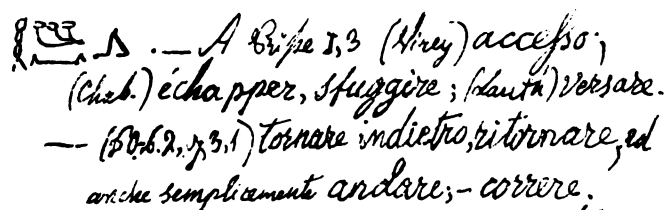 . — A Prisse I, 3 (Virey) accesso;
(Chab.) échapper, sfuggire; (Lauth) versare.
— ( 6.2, 7, 3, 1) tornare indietro, ritornare, ed
anche semplicemente andare; – correre.